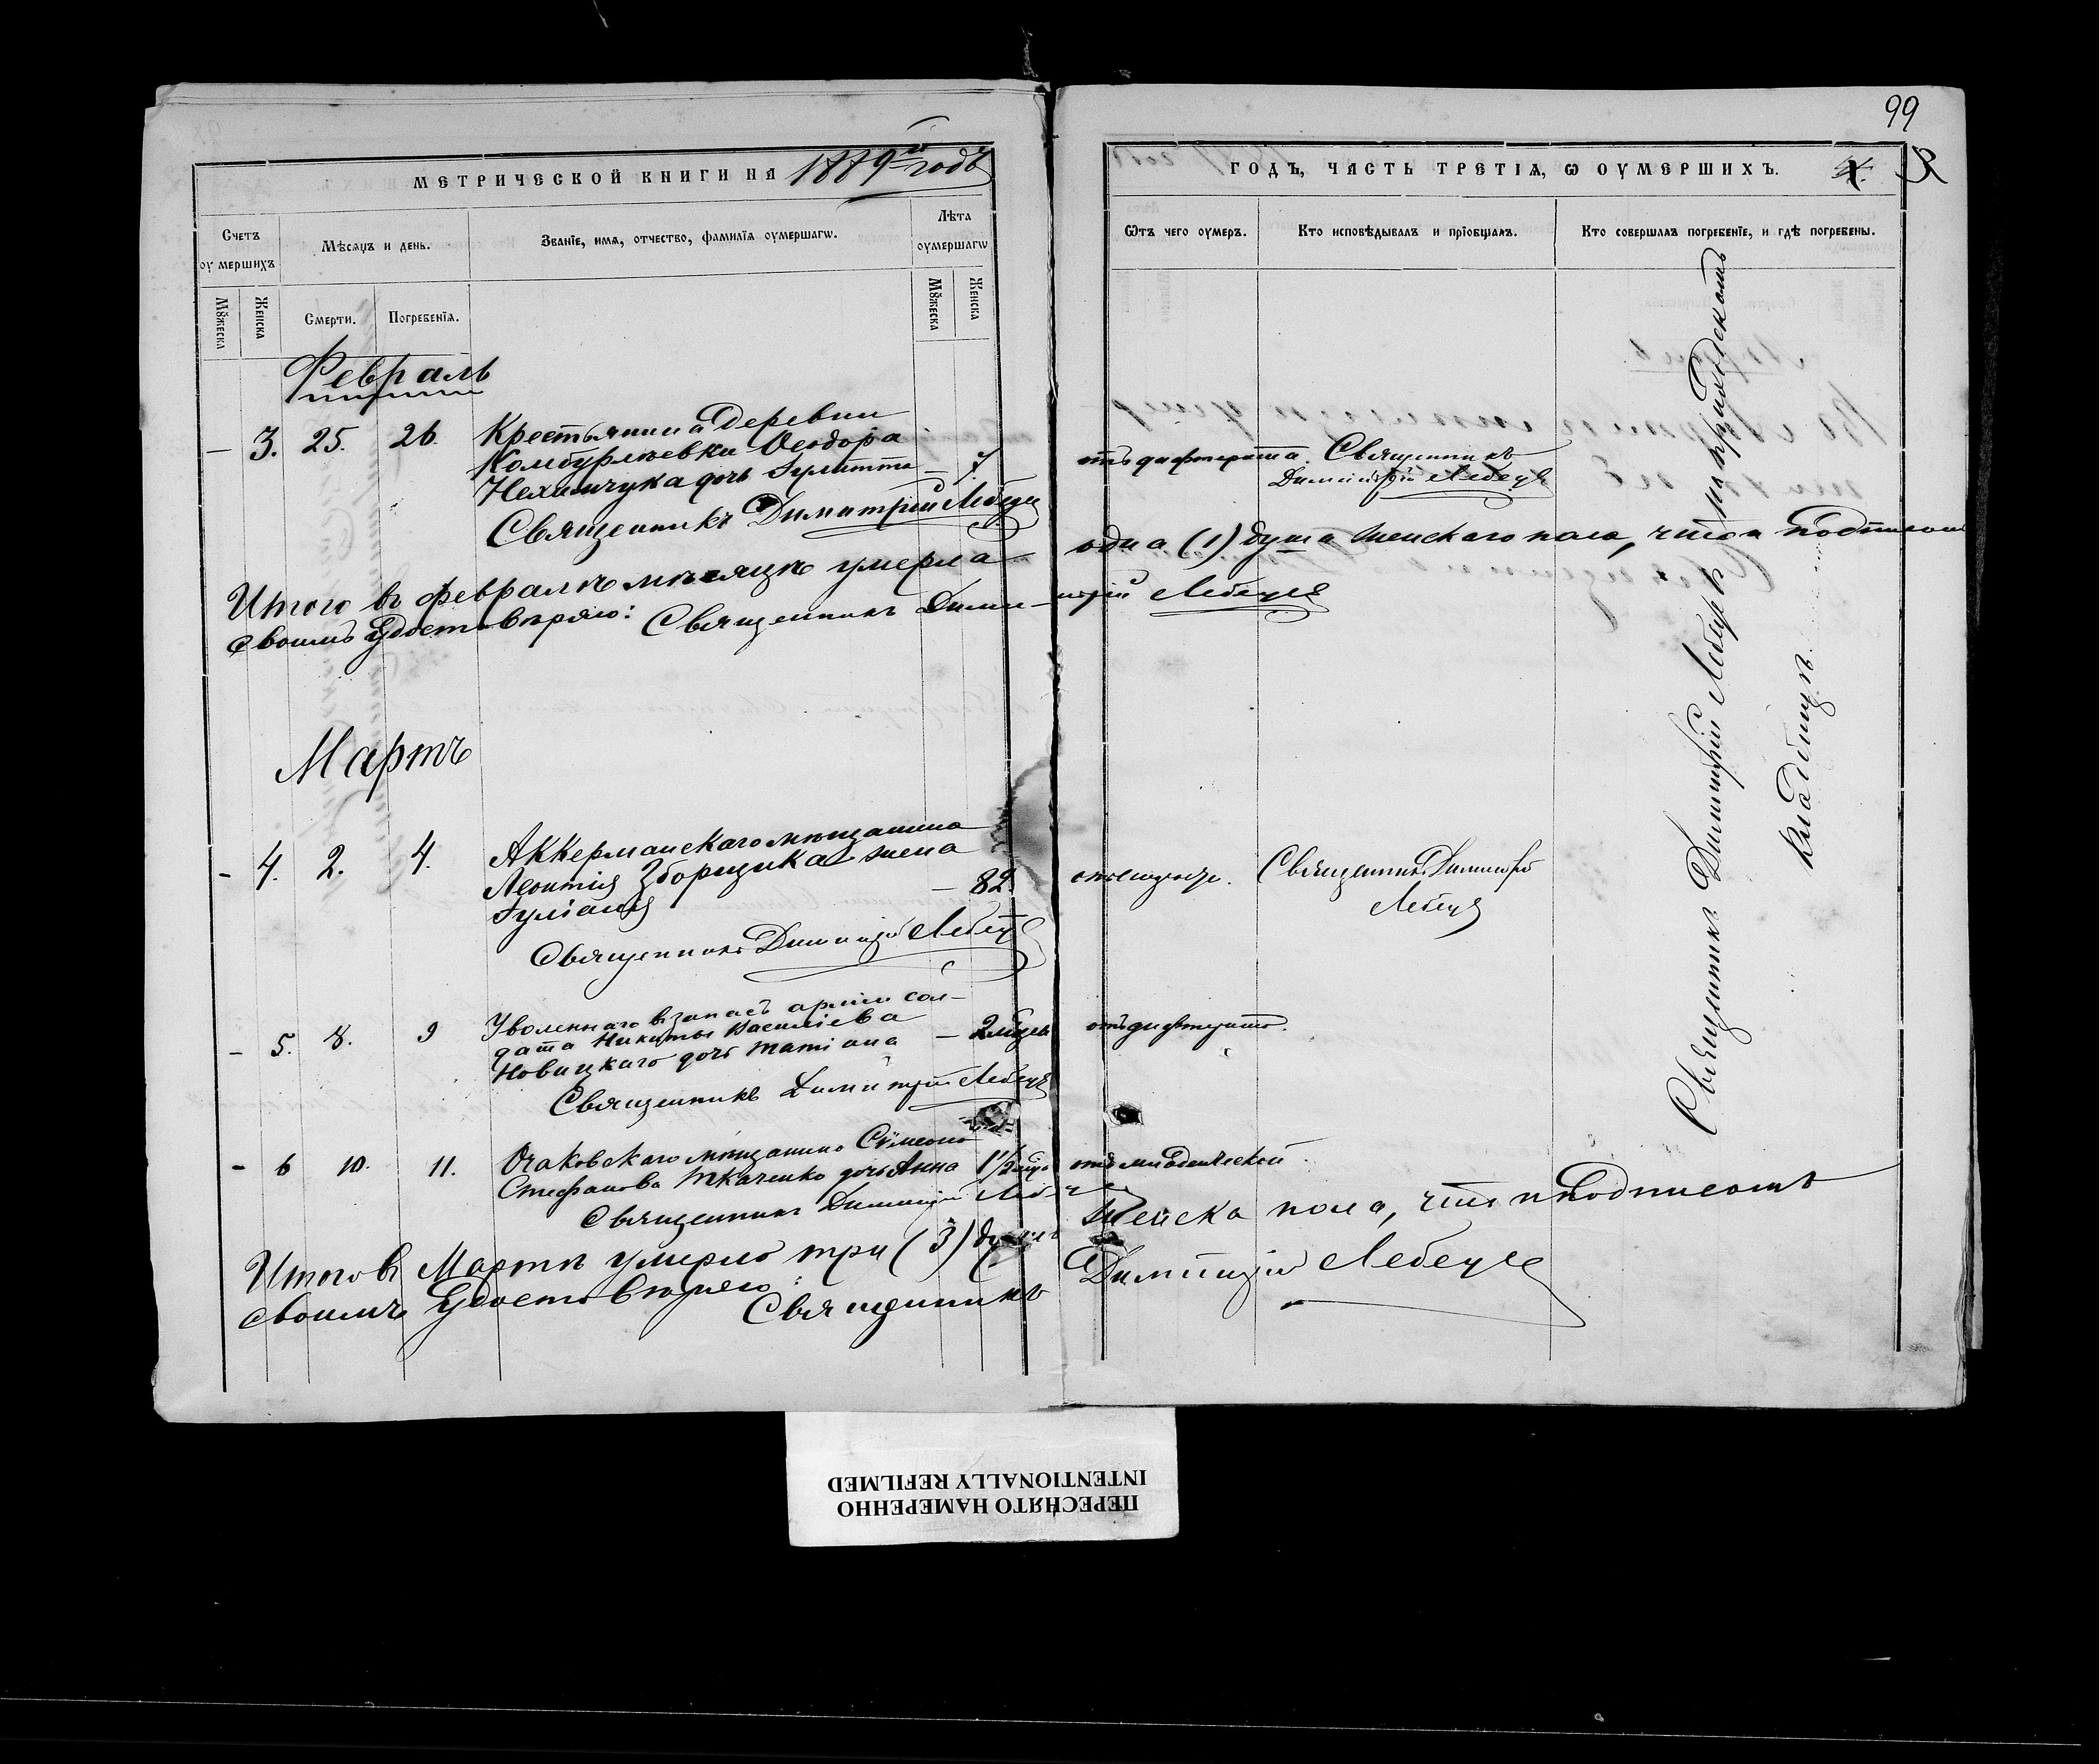 99
МЕТРИЧЕСКОЙ КНИГИ НА 1889й годъ
ГОДЪ, ЧАСТЬ ТРЕТІѦ, Ѡ ОУМЕРШИХЪ.
Счетъ оумершихъ
Мѣсѧцъ и день.
Званіе, имѧ, отчество, фамиліѧ оумершагѡ.
Лѣта оумершагѡ
Ѿтъ чего оумеръ.
Кто исповѣдывалъ и пріобщалъ.
Кто совершалъ погребеніе, и гдѣ погребены.
Мꙋжеска
Женска
Смерти.
Погребеніѧ.
Мꙋжеска
Женска
Февраль
– 3. 25. 26. Крестьянина деревни
Ѳеодора
дочь Iулитта – 7. отъ дифтерита. Священникъ
Димитрій Лебедь
Священникъ Димитрій Лебедь
Итого въ февралѣ мѣсяцѣ умерла одна (1) душа женскаго пола, что и подписом
своимъ удостовѣряю: Священникъ Дими-трій Лебедь
Мартъ
– 4. 2. 4. Аккерманскаго мѣщанина
Леонтія Зборщика жена
Iуліанія – 82.
Священникъ Димитрій
Лебедь
Священникъ Димитрій Лебедь
– 5. 8. 9 Уволеннаго въ запасъ арміи сол-
дата Никиты Василіева
Новицкаго дочь Татіана – 2 отъ дифтерита.
Священникъ Димитрій Лебедь
– 6 10. 11. Очаковскаго мѣщанина Сѵмеона
Стефанова Ткаченко дочь Анна 1½ отъ младенческой.
Священникъ Димитрій Лебедь
Итого въ Мартѣ умерло три (3) душъ женска пола, что и подписомъ
своимъ удостовѣряю: Священникъ Димитрій Лебедь
Священникъ Димитрій Лебедь на приходскомъ
кладбищѣ.
ПЕРЕСНЯТО НАМЕРЕННО
INTENTIONALLY REFILMED